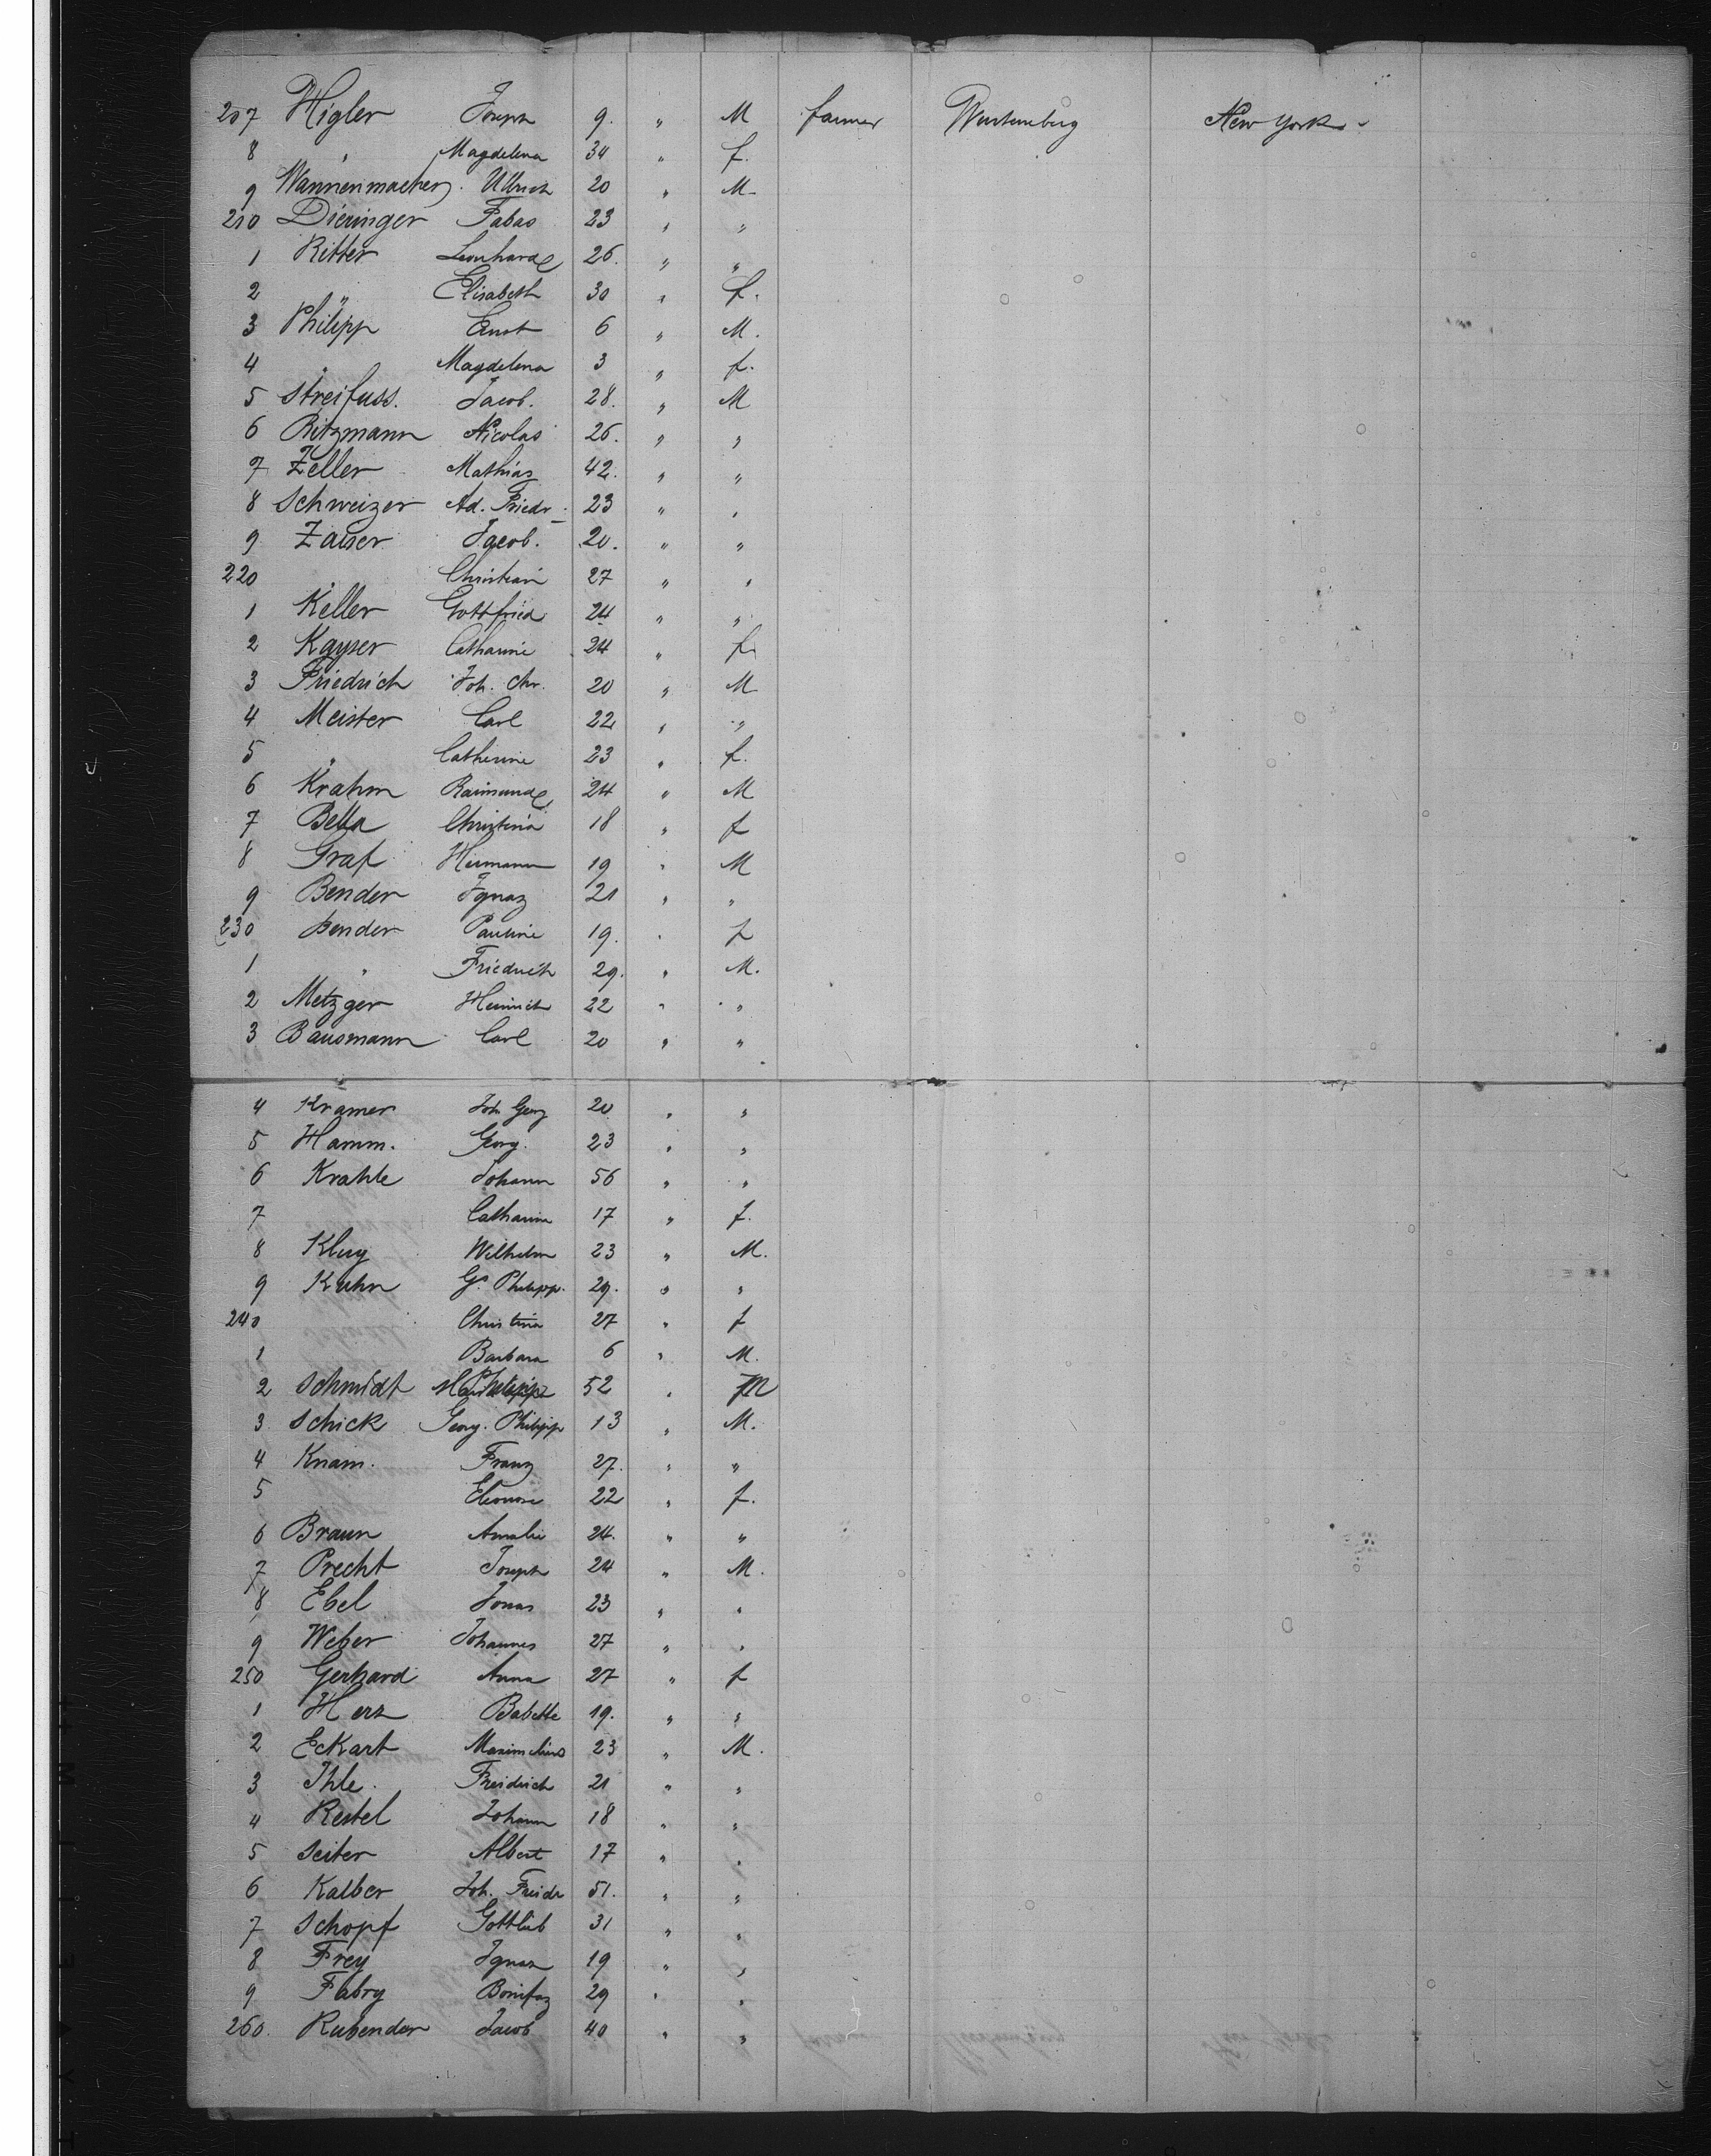 207 Higler Joseph 9. " M farmer Wurtemberg New York
8 " Magdelena 34 " f.
9 Wannenmacher Ullrich 20 " M
210 Dieringer Fabas 23 " "
1 Ritter Leonhard 26. " "
2 " Elisabeth 30 " f.
3 Philipp Ernst 6 " M.
4 " Magdelena 3 " f.
5 Streifuss. Jacob. 28. " M
6 Ritzmann Nicolas 26. " "
7 Zeller Mathias 42. " "
8 Schweizer Ad. Friedr. 23 " "
9 Zaiser Jacob. 20. " "
220 " Christian 27 " "
1 Keller Gottfried 24 " "
2 Kayser Catharine 24 " f
3 Friedrich Joh. Chr. 20 " M
4 Meister Carl 22 " "
5 " Catherine 23 " f.
6 Krahm Raimund 24 " M
7 Betta Christina 18 " f
8 Graf Hermann 19 " M
9 Bender Ignaz 21 " "
230 Bender Pauline 19. " f
1 " Friedrich 29. " M.
2 Metzger Heinrich 22 " "
3 Bausmann Carl 20 " "
4 Kramer Joh Georg 20 " "
5 Hamm. Georg. 23 " "
6 Krahle Johann 56 " "
7 Catharine 17 " f.
8 Klug Wilhelm 23 " M.
9 Kuhn Gg. Philipp. 29. " "
240 Christina 27 " f
1 Barbara 6 " M.
2 Schmidt Philipp 52 " M
3 Schick Georg. Philipp 13 " M.
4 Knam. Franz 27. " "
5 Eleonore 22 " f.
6 Braun Amalie 24. " "
7 Precht Joseph 24 " M.
8 Ebel Jonas 23 " "
9 Weber Johannes 27 " "
250 Gerhard Anna 27 " f
1 Herz Babette 19. " "
2 Eckart 23 " M.
3 Ihle. Freidrich 21 " "
4 Restel Johann 18 " "
5 Seiter Albert 17 " "
6 Kalber Joh. Freidr 51. " "
7 Schopf Gottlieb 31 " "
8 Frey Ignaz 19 " "
9 Fabry Bonifaz 29 " "
260. Rubender Jacob 40 " "